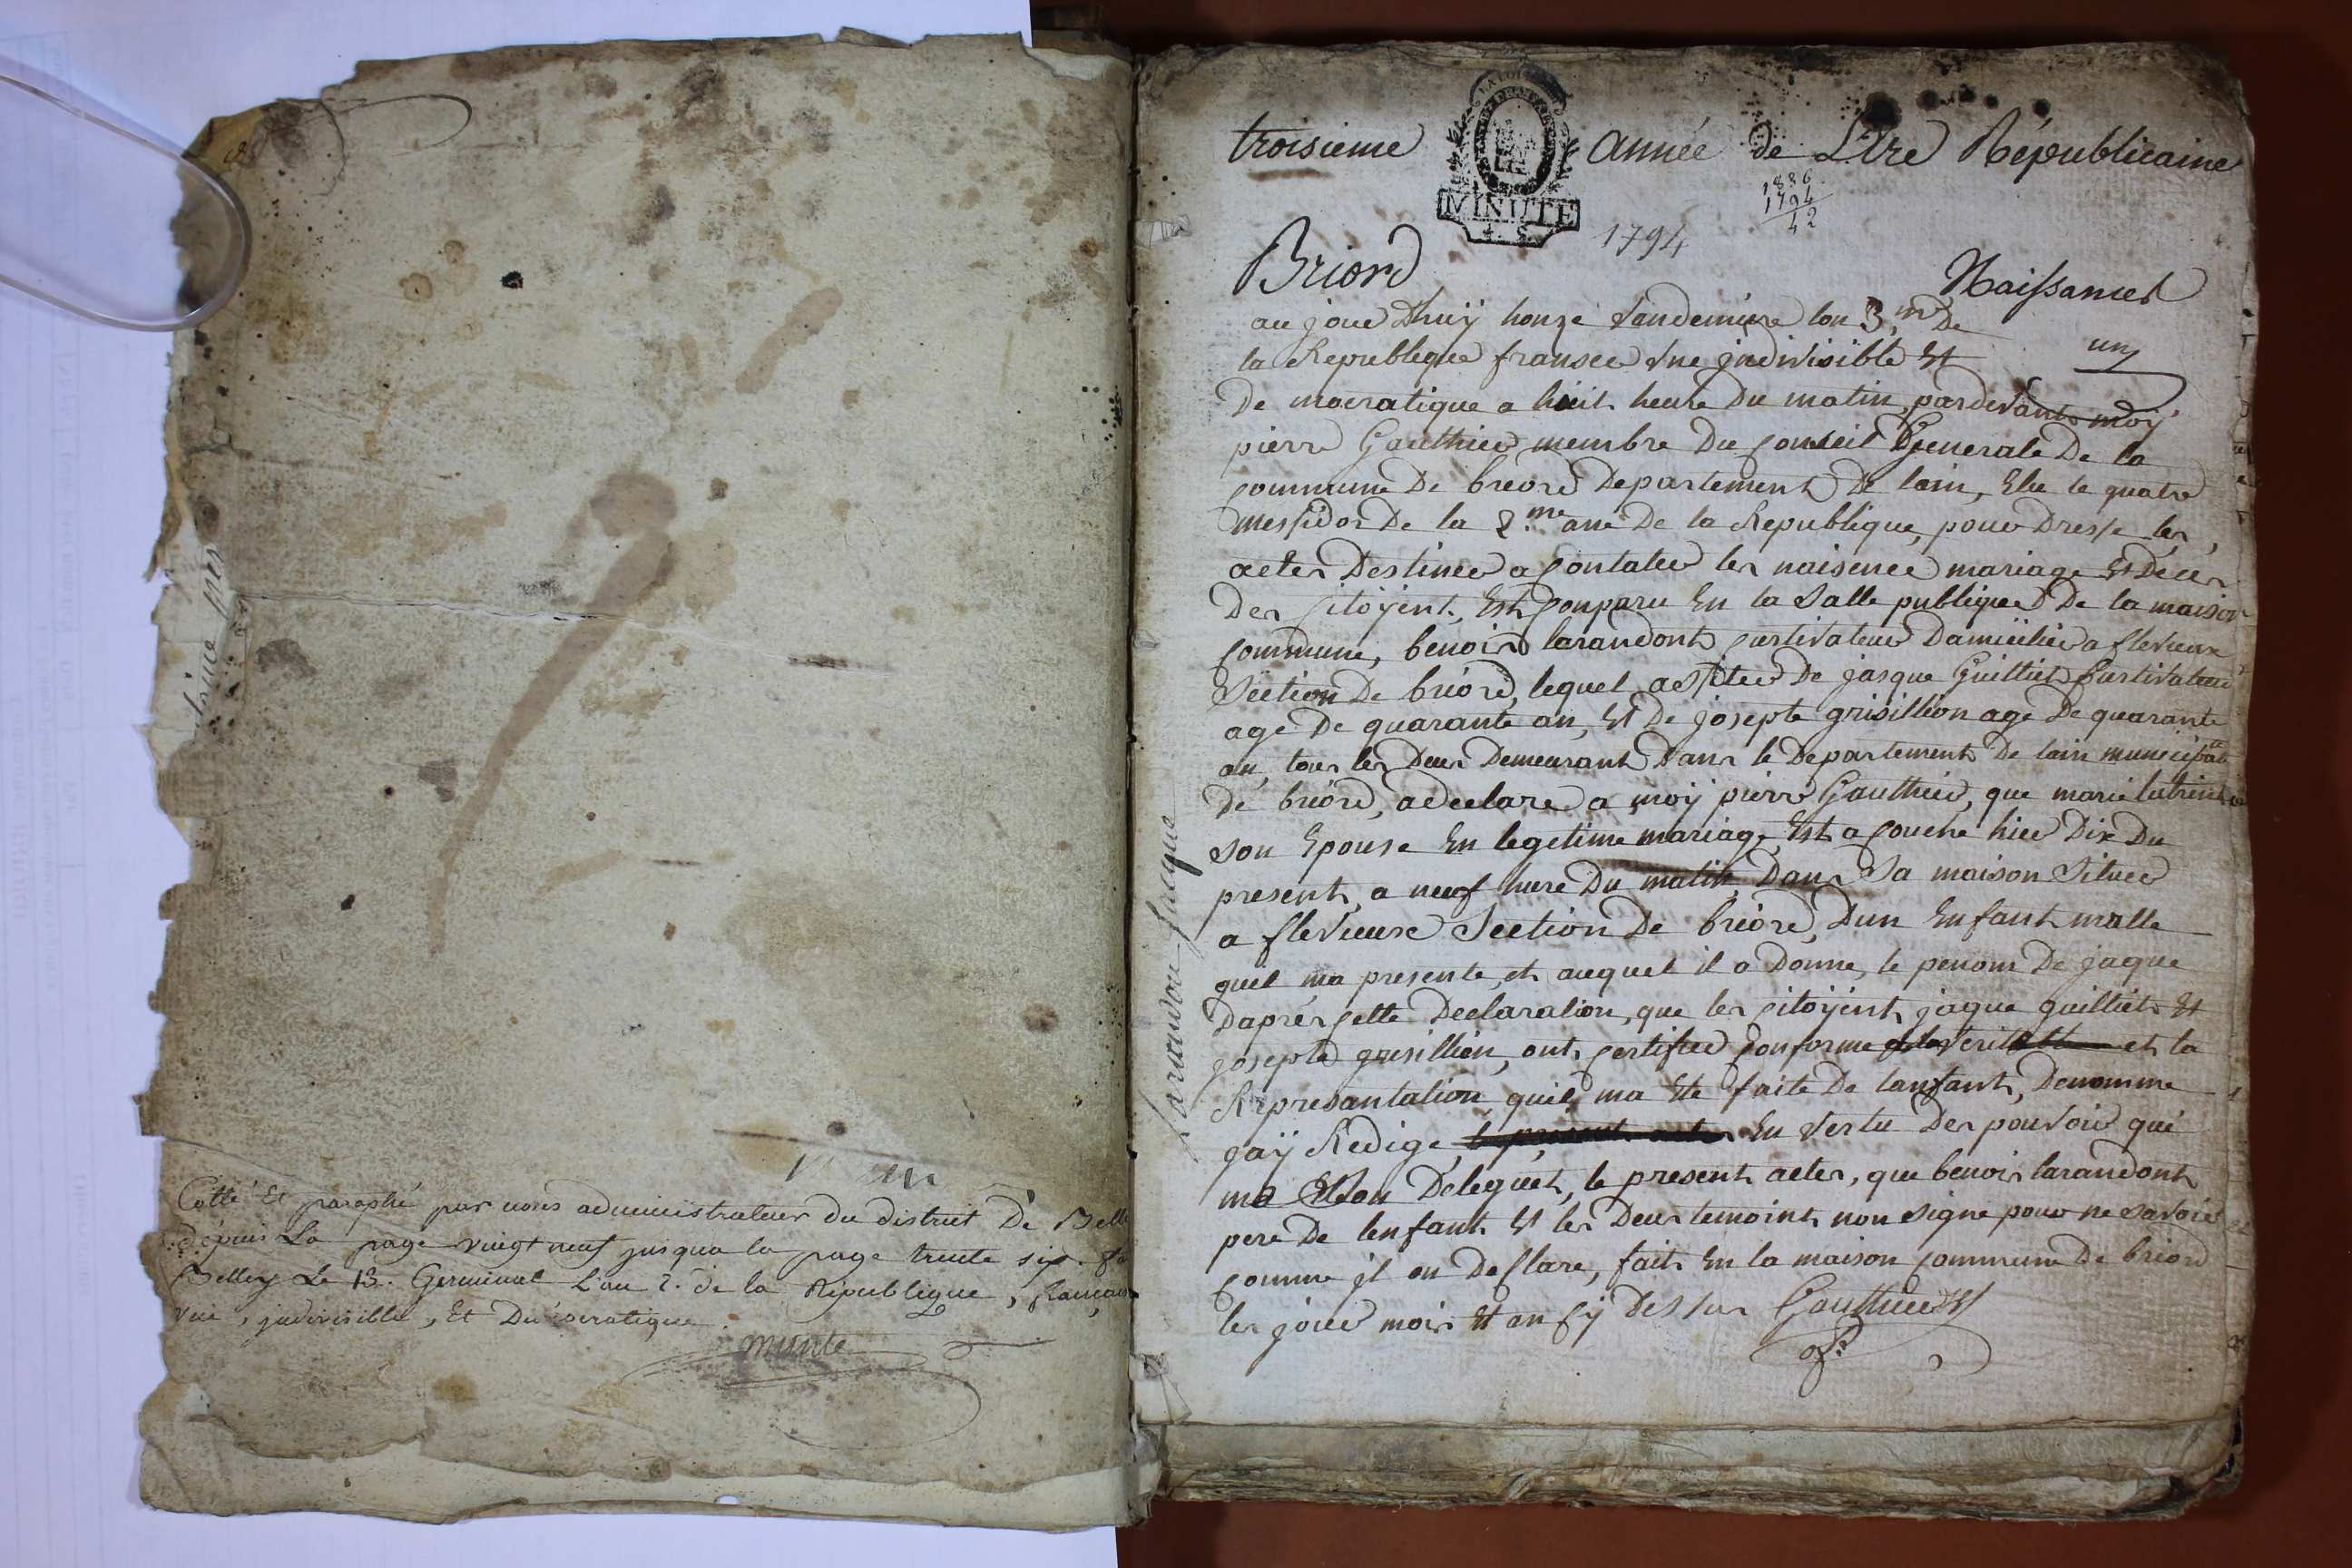 Cotté Et paraphé par nous administrateur du district De Belle
depuis La page vingt neuf jusqua la page trente six.
Belley Le 13. Germinal L'an 2. de la République, francaise
une, indivisible, Et Démocratique.
troisieme année de L'Ere Républicaine
LA LOI
MINUTE
1836
1794
42
1794
Briord
Naissances
un
au jour dhuÿ honze Vandemière lon 3.me De
la Republique fransee Une jndivisible Et
De mocratique a huit heure Du matin, pardevant moÿ
pierre Gauthier membre Du Conseil Generale De la
commune De briord Departement De lain, Elu le quatre
messidor De la 2.me ane De la Republique, pour Dresse les
actes Destinee a Contater les naisence mariage Et Deces
Des Citoÿent, Est Conparu En la Salle publique De la maison
Commune, benoir larandont Curtivateur Damicilier a flevieux
Section De briord, lequel asister De jasque Guilliet Curtivateur
age De quarante an, Et De josepte grisillion age De quarante
an, tous les Deux Demeurant Dans le Departement De lain municipalte
De briord, a declare a moÿ pierre Gauthier, que marie
son Epouse En legitime mariage, Est a Couche hier Dix Du
present, a neuf hure Du matin, Dans Sa maison Situee
a flevieux Section De briord, Dun Enfant malle
quil ma presente, et auquel il a Donne, le penom De jaque
Dapres Cette Declaration, que les Citoÿent jaque guilliet Et
josepte grisillion, ont Certifier Conforme a la verite et la
Representation quil ma Ete faite De lanfant, Denomme
jaÿ Redige, le present actes En vertu Des pouvoir qui
mo Etson Deleguet, le present actes, que benoir larandont
pere De lenfant Et les Deux temoint non signe pour ne savoir
Comme jl on De Clare, fait En la maison Commune De briord
les jour moir Et an Cÿ Dessus Gauthier
off.
Larandon Jacque